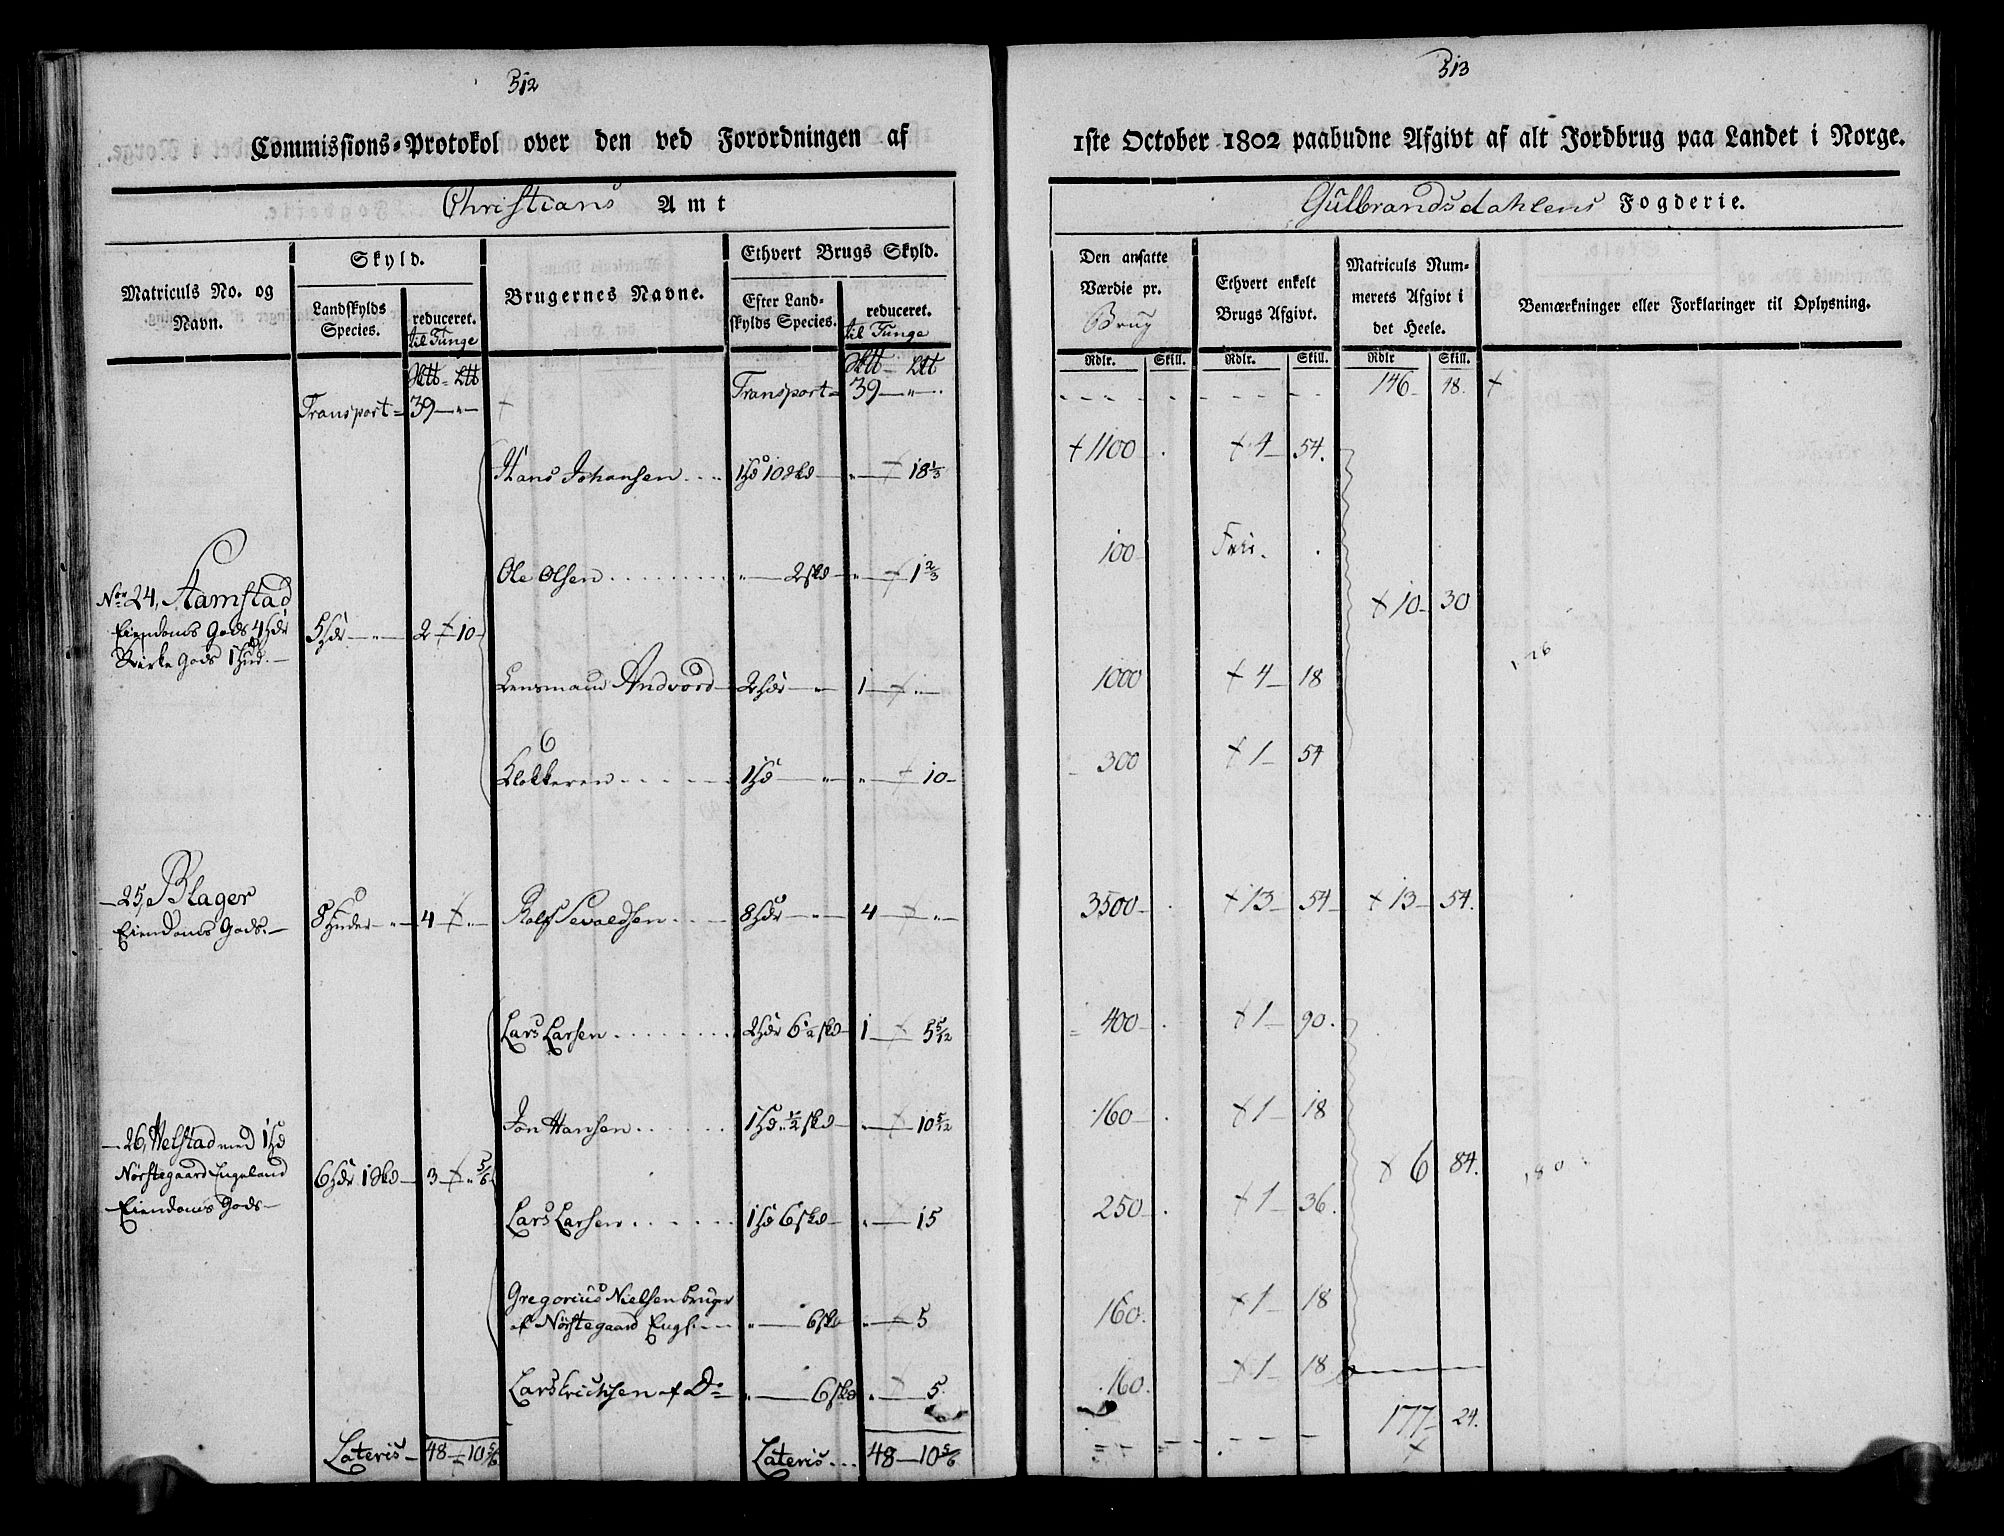 512
Commissions-Protokol over den ved Forordningen af
Christians Amt
Matriculs No. og Navn.
Skyld.
Landskylds Species.
reduceret. til Tunge
Brugernes Navne.
Ethvert Brugs Skyld.
Efter Landskylds Species.
reduceret. til Tunge
Transport = 39 — " —
Transport = 39 — " —
Hans Johansen . . . 1Hd 10skd — " — 18 1/3
Ole Olsen . . . . . . . . " — 2skd — " — 1 2/3
Nor 24, Aamstad
Eiendoms Gods 4Hdr
Kirke Gods 1Hud. —
5Hdr — " — 2 — 10 —
Lensmand Andvord — 2Hdr — " — 1 — " —
Klokkeren . . . . . . 1Hd — " — " — 10 —
— 25, Blager
Eiendoms Gods. —
8Huder — " — 4 — " —
Rolf Sevaldsen . . . . 8Hdr — " — 4 — " —
Lars Larsen . . . . . . . 2Hdr 6½skd — 1 — 5 5/12
Jon Hansen . . . . . . 1Hd " ½skd — " — 10 5/12
— 26, Helstad med 1Hd
Nörstegaard Engeland
Eiendoms Gods —
6Hdr 1skd — 3 — " 5/6
Lars Larsen . . . . . . 1Hd 6skd — " — 15
Gregorius Nielsen bruger
af Nörstegaard Engl. — " — 6skd — " — 5
Lars Erichsen af Do — " — 6skd — " — 5
Lateris — 48 — 10 5/6
Lateris . . . 48 — 10 5/6
513
1ste October 1802 paabudne Afgivt af alt Jordbrug paa Landet i Norge.
Gulbrandsdahlens Fogderie.
Den ansatte Værdie pr. Brug
Ethvert enkelt Brugs Afgivt.
Matriculs Nummerets Afgivt i det Heele.
Bemærkninger eller Forklaringer til Oplysning.
Rdlr. Skill. Rdlr. Skill. Rdlr Skill.
146 18. +
+ 1100 + 4 — 54.
100 Frie.
+ 10 — 30
1000 + 4 — 18
300 + 1 — 54
3500 — + 13 — 54 — + 13 — 54.
400 — + 1 — 90.
160 — + 1 — 18
+ 6 84.
180
250 — + 1 — 36.
160. + 1 — 18
160. + 1 — 18
177 — 24.
+